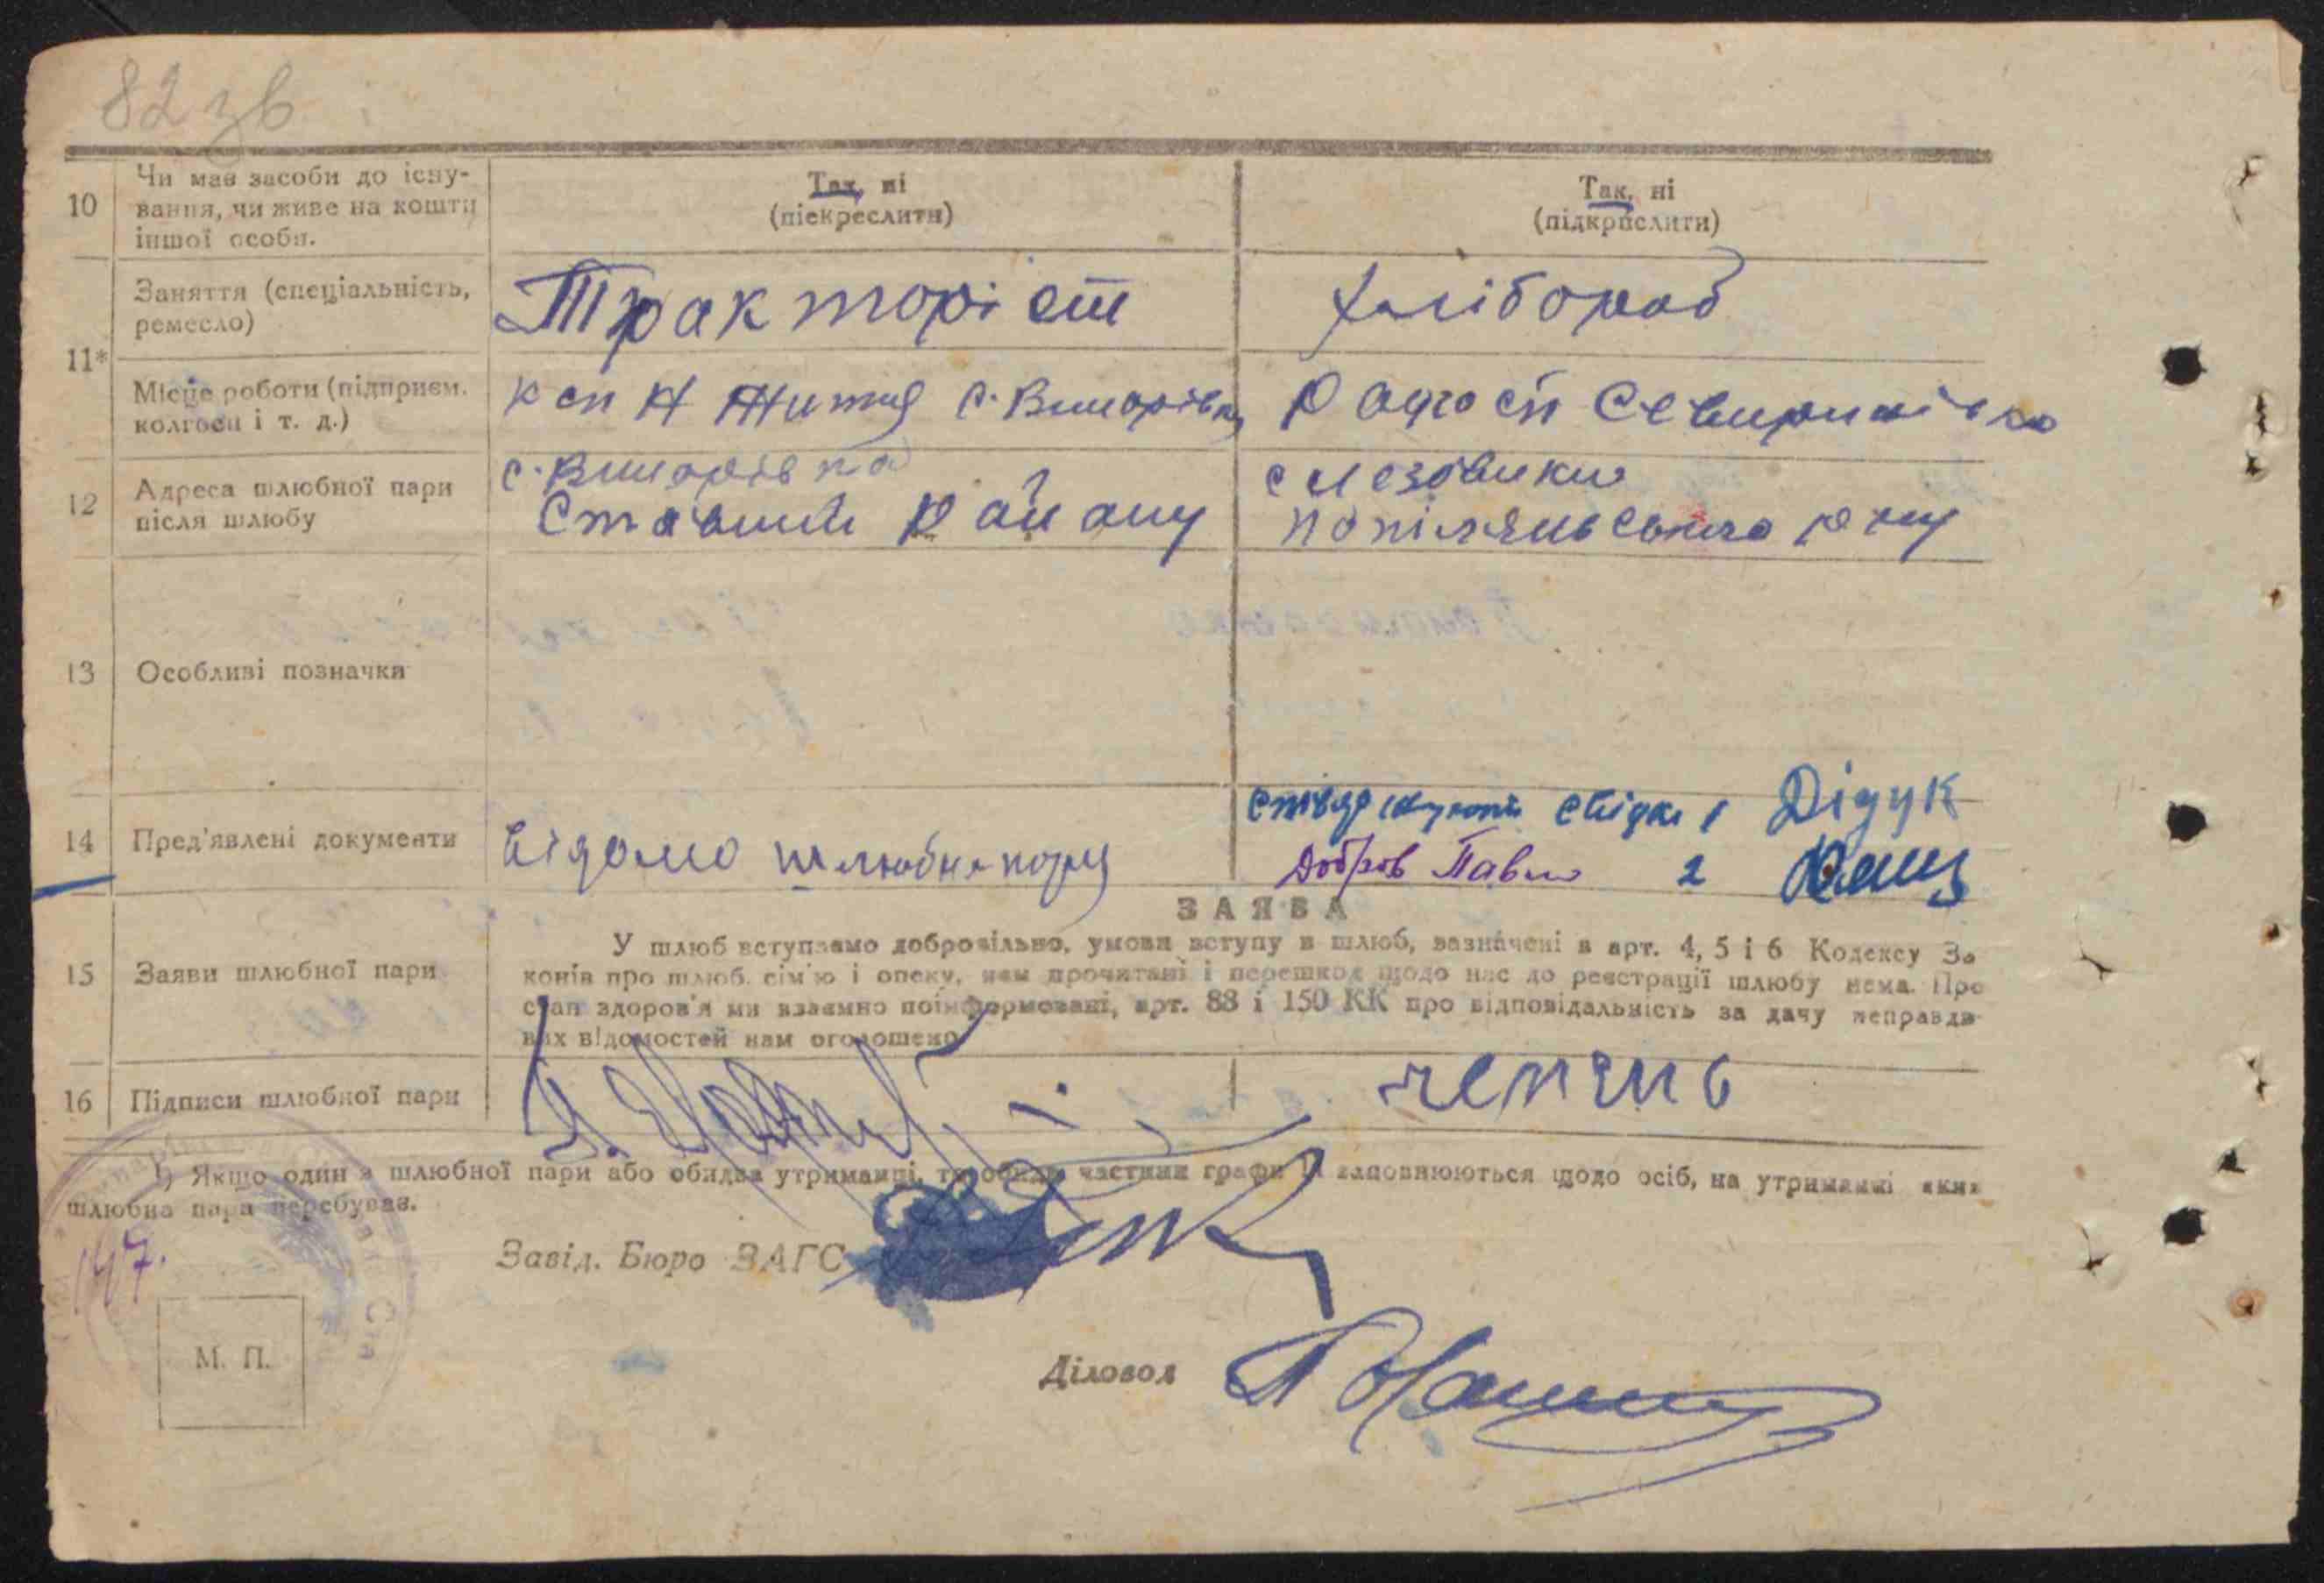 82 зв
10
Чи має засоби до існу-
вання, чи живе на кошти
іншої особи.
Так, ні
(піекреслити)
Так, ні
(підкрпслити)
11*
Заняття (спеціальність,
ремесло)
Тракторіст
хлібороб
Місце роботи (підприєм.
колгосп і т. д.)
Н Життя с. Винорівка
Радгосп
12
Адреса шлюбної пари
після шлюбу
с. Винорівка
Ставищ району
с
13
Особливі позначки
14
Пред'явлені документи
Відомо шлюбна
свідки 1 Дідук
Добров Павло 2
ЗАЯВА
15
Заяви шлюбної пари
У шлюб вступаємо добровільно, умови вступу в шлюб, вазначені в арт. 4, 5 і 6 Кодексу За
конів про шлюб. сім'ю і опеку, нам прочитані і перешкод щодо нас до реєстрації шлюбу нема. Про
стан здоров'я ми взаємно поінформовані, арт. 88 і 150 КК про відповідальність за дачу неправди
вих відомостей нам оголошено
16
Підписи шлюбної пари
1) Якщо один з шлюбної пари або обидва утриманці, то обидві частини графи 11 заповнюються щодо осіб, на утриманні яких
шлюбна пара перебуває.
147.
Завід. Бюро ЗАГС
М. П.
Діловод